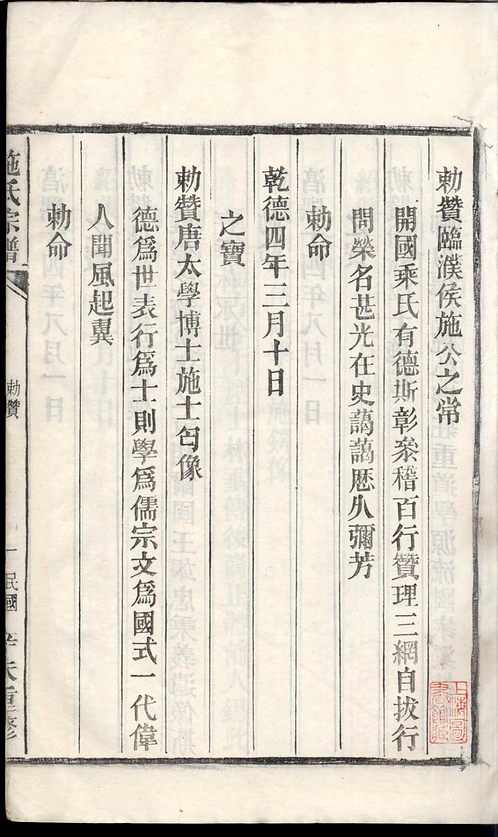 勅贊臨濮侯施公之常
開國乘氏有德斯彰叅稽百行贊理三綱自拔行
問榮名甚光在史藹藹歷乆彌芳
勅命
乾德四年三月十日
之寶
勅贊唐太學博士施士匄像
德爲世表行爲士則學爲儒宗文爲國式一代偉
人聞風起翼
勅命
施氏宗譜
勅贊
一
民國
重修